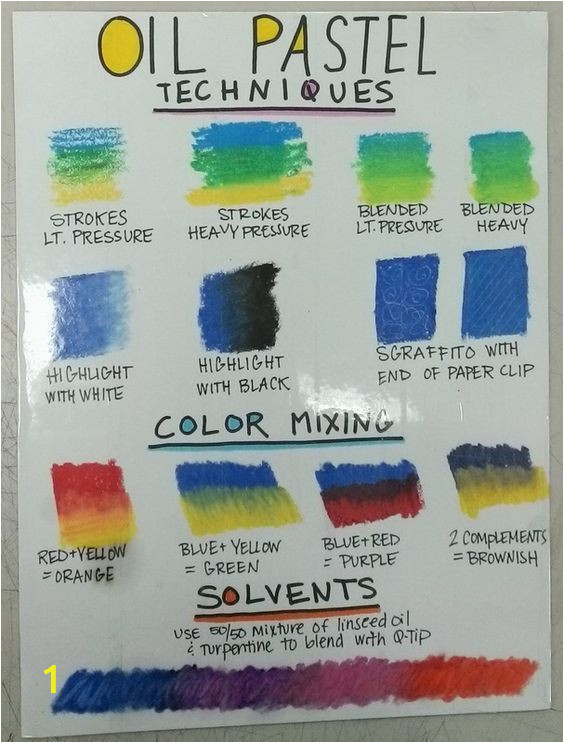 OIL PASTEL
TECHNIQUES
STROKES
LT. PRESSURE
STROKES
HEAVY PRESSURE
BLENDED
LT. PRESSURE
BLENDED
HEAVY
HIGHLIGHT
WITH WHITE
HIGHLIGHT
WITH BLACK
SGRAFFITO WITH
END OF PAPER CLIP
COLOR MIXING
RED+YELLOW
= ORANGE
BLUE+YELLOW
= GREEN
BLUE+RED
= PURPLE
2 COMPLEMENTS
= BROWNISH
SOLVENTS
USE 50/50 MIXTURE OF LINSEED OIL
& TURPENTINE TO BLEND WITH Q-TIP
1